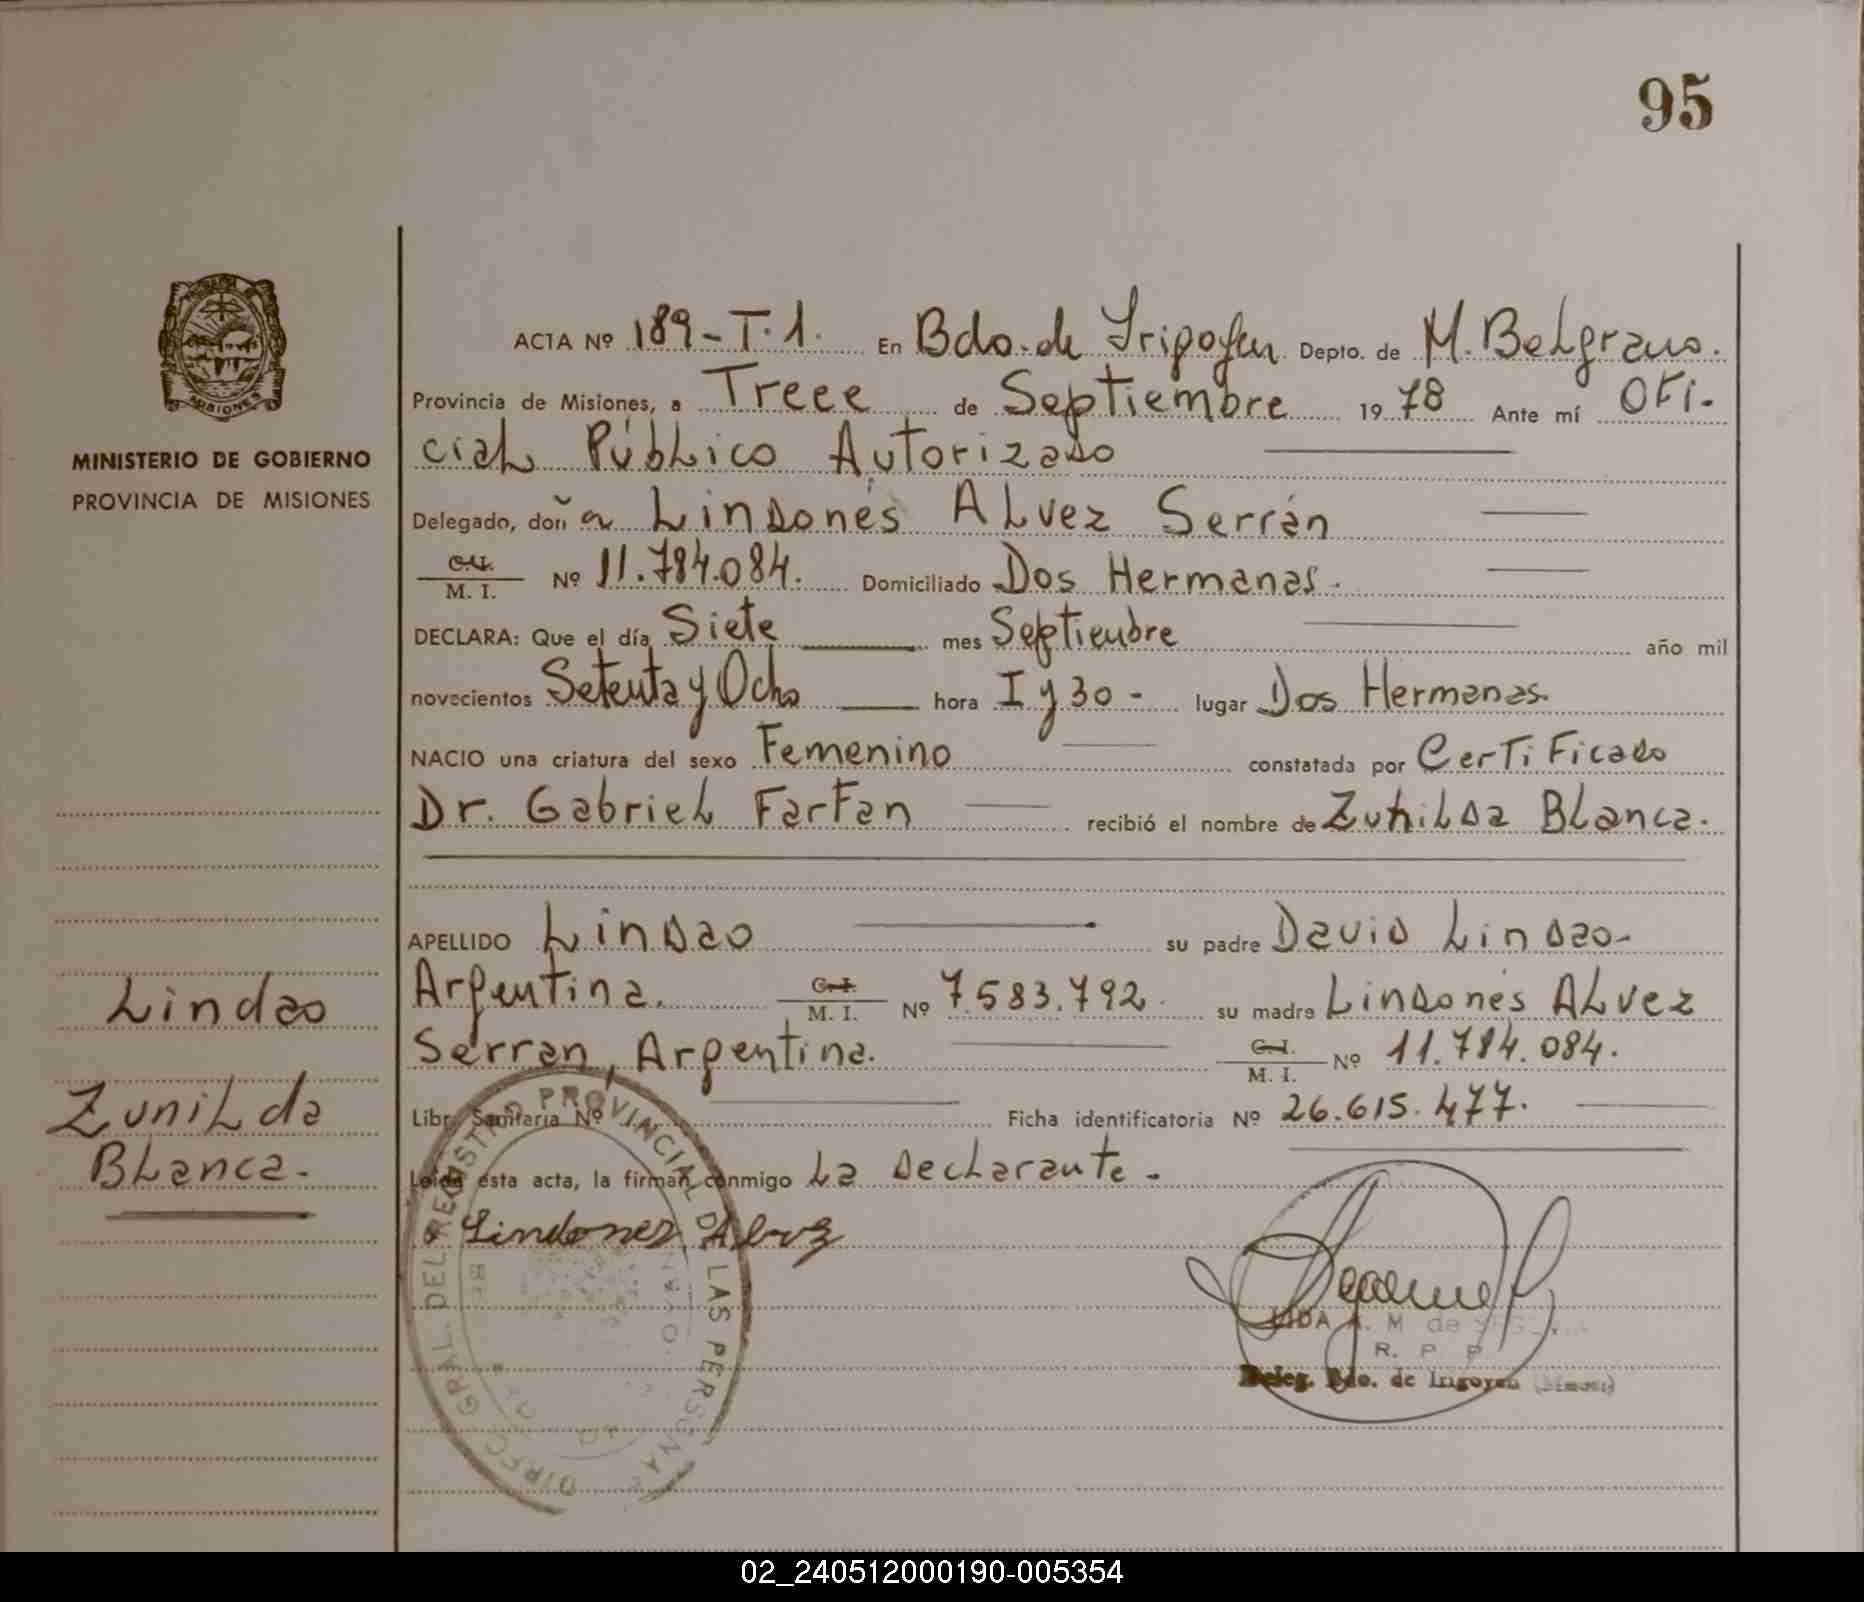 95
MINISTERIO DE GOBIERNO
PROVINCIA DE MISIONES
ACTA Nº 189-T.1. En Bdo. de Irigoyen Depto. de M. Belgrano.
Provincia de Misiones, a Trece de Septiembre 1978 Ante mí Ofi-
cial Público Autorizado
Delegado, doña Lindonés Alvez Serrán
C.I.
M. I. Nº 11.784.084. Domiciliado Dos Hermanas.
DECLARA: Que el día Siete mes Septiembre año mil
novecientos Setenta y Ocho hora I y 30 - lugar Dos Hermanas.
NACIO una criatura del sexo Femenino constatada por Certificado
Dr. Gabriel Farfan recibió el nombre de Zunilda Blanca.
APELLIDO Lindao su padre David Lindao-
Argentina. C.I.
M. I. Nº 7.583.792. su madre Lindonés Alvez
Serran, Argentina. C.I.
M. I. Nº 11.784.084.
Libr. Sanitaria Nº Ficha identificatoria Nº 26.615.477.
Leída esta acta, la firman conmigo La Declarante.
Lindonez Alvez
Lindao
Zunilda
Blanca.
DIREC. GRAL. DEL REGISTRO PROVINCIAL DE LAS PERSONAS
LIDA A. M de
R. P P
Deleg. Bdo. de Irigoyen (Misiones)
02_240512000190-005354